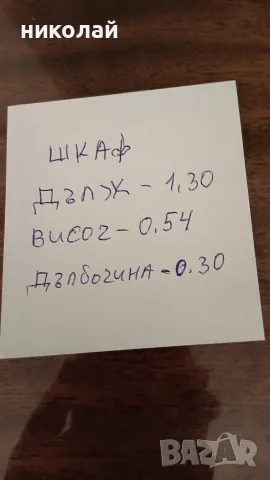 николай
ШКАФ
ДЪЛЖ - 1,30
ВИСОЧ - 0.54
ДЪЛБОЧИНА - 0.30
BAZAR
.bg